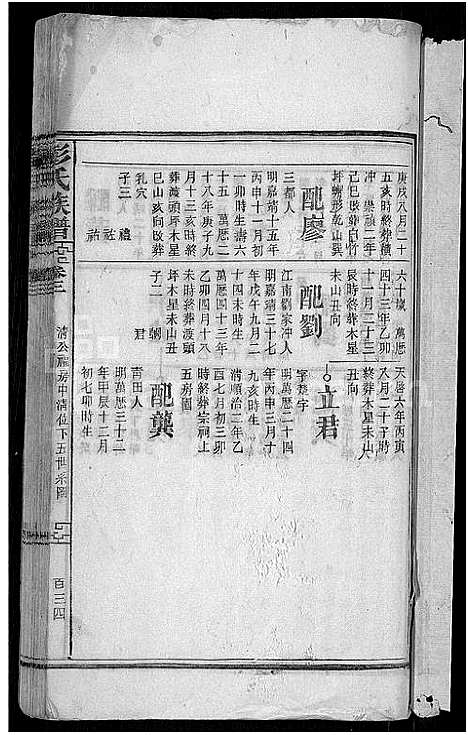 庚戌八月二十
五亥時終葬橫
冲 崇禎二年
己巳改葬白竹
坪螃形乾山巽
配廖
三都人
明嘉靖十五年
丙申十一月初
一卯時生壽六
十五 萬歷二
十八年庚子九
月十三亥時終
葬渡頭坪木星
巳山亥向改葬
乳穴
子三 禮 社 祐
六十歲 萬歷
四十三年乙卯
十一月二十三
辰時終葬木星
未山丑向
配劉
江南劉家冲人
明嘉靖三十七
年戊午九月二
十四未時生
乙卯四月十八
未時終葬渡頭
坪木星未山丑
子二 君
天啓六年丙寅
八月二十子時
終葬木星未山
丑向
立君
字楚宇
明萬歷二十四
年丙申三月十
九亥時生
清順治二年乙
酉七月初三卯
時終葬宗祠上
五房園
配龔
青田人
明萬歷三十二
年甲辰十二月
初七卯時生
彭氏族譜 卷三
清公 房中清位下五世系圖
百三四